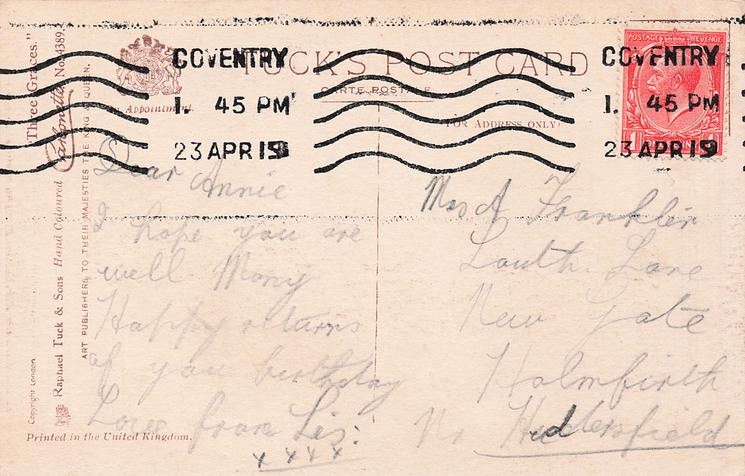 "Three Graces."
Carbonette No. 4389.
Raphael Tuck & Sons Hand Coloured
Copyright London
ART PUBLISHERS TO THEIR MAJESTIES THE KING & QUEEN.
By Appointment.
TUCK'S POST CARD
CARTE POSTALE
(FOR ADDRESS ONLY)
COVENTRY
1. 45 PM
23 APR 19
COVENTRY
1. 45 PM
23 APR 19
POSTAGE REVENUE
Dear Annie
I hope you are
well Many
Happy returns
of you birthday
Love from Lis:
xxxx
Mrs A Franklin
South Lane
New Gate
Holmfirth
Nr Huddersfield
Printed in the United Kingdom.